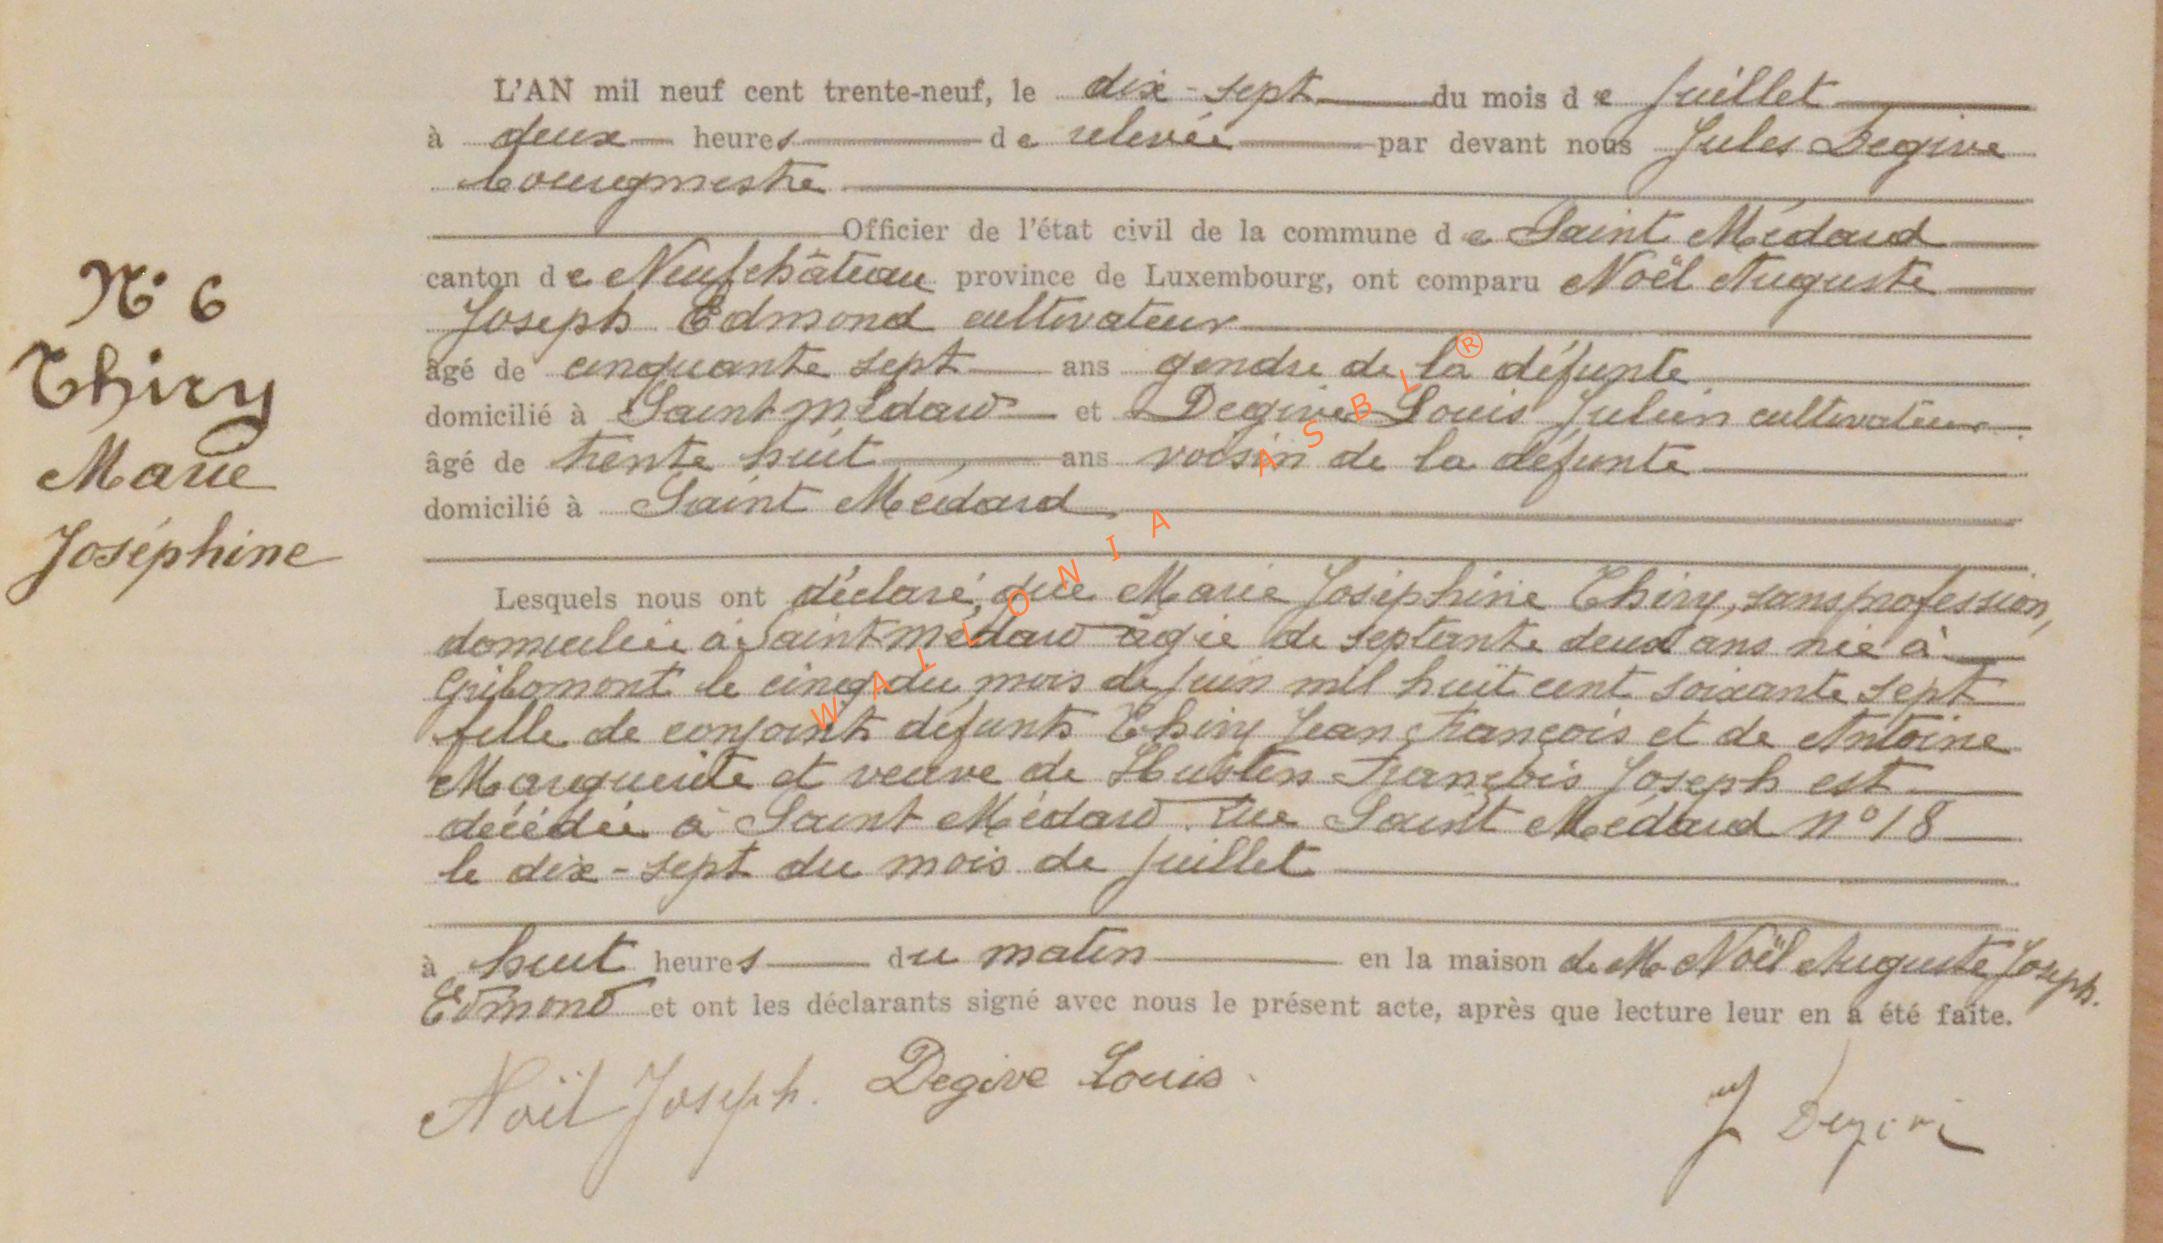 L'AN mil neuf cent trente-neuf, le dix-sept du mois de juillet
à deux heures de relevée par devant nous Jules Degive
bourgmestre
Officier de l'état civil de la commune de Saint Médard
canton de Neufchâteau province de Luxembourg, ont comparu Noël Auguste
Joseph Edmond cultivateur
âgé de cinquante sept ans gendre de la défunte
domicilié à Saint Médard et Degive Louis Julien cultivateur
âgé de trente huit ans voisin de la défunte
domicilié à Saint Médard
N° 6
Thiry
Marie
Joséphine
Lesquels nous ont déclaré, que Marie Joséphine Thiry, sans profession,
domiciliée à Saint Médard âgée de septante deux ans née à
Gribomont le cinq du mois de juin mil huit cent soixante sept
fille de conjoints défunts Thiry Jean François et de Antoine
Marguerite et veuve de Hustin François Joseph est
décédée à Saint Médard rue Saint Médard n° 18
le dix-sept du mois de juillet
à huit heures du matin en la maison de M Noël Auguste Joseph
Edmond et ont les déclarants signé avec nous le présent acte, après que lecture leur en a été faite.
Noël Joseph. Degive Louis.
J Degive
WALLONIA ASBL ®